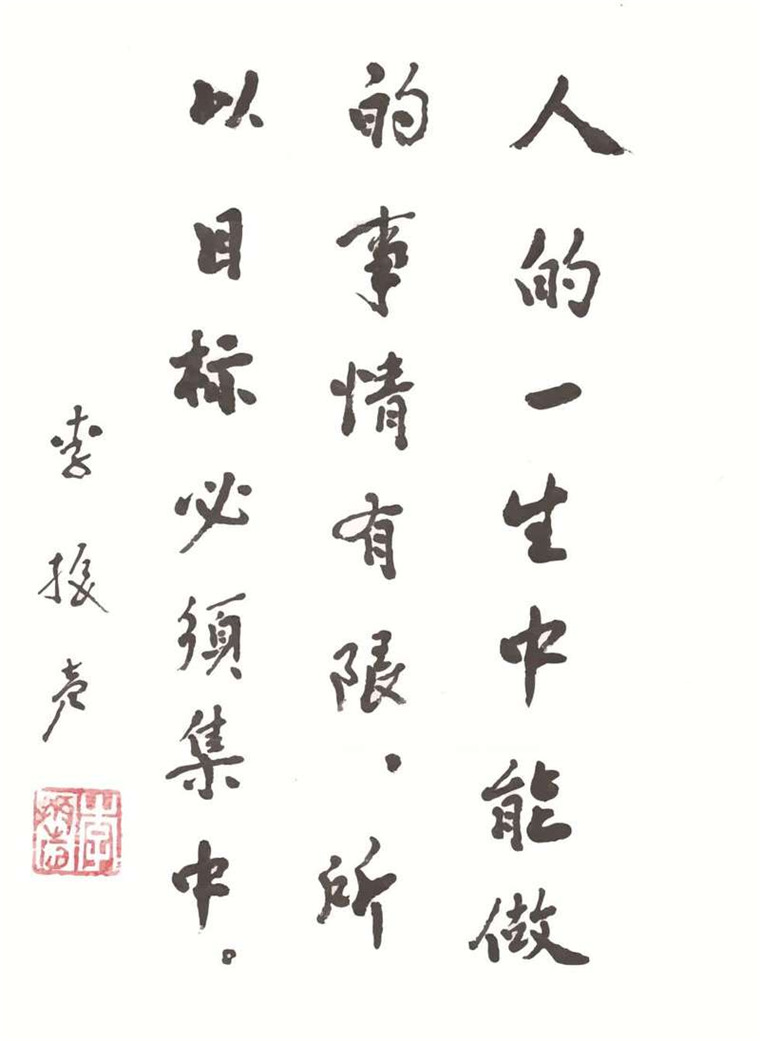 人的一生中能做
的事情有限.所
以目标必須集中。
李振声